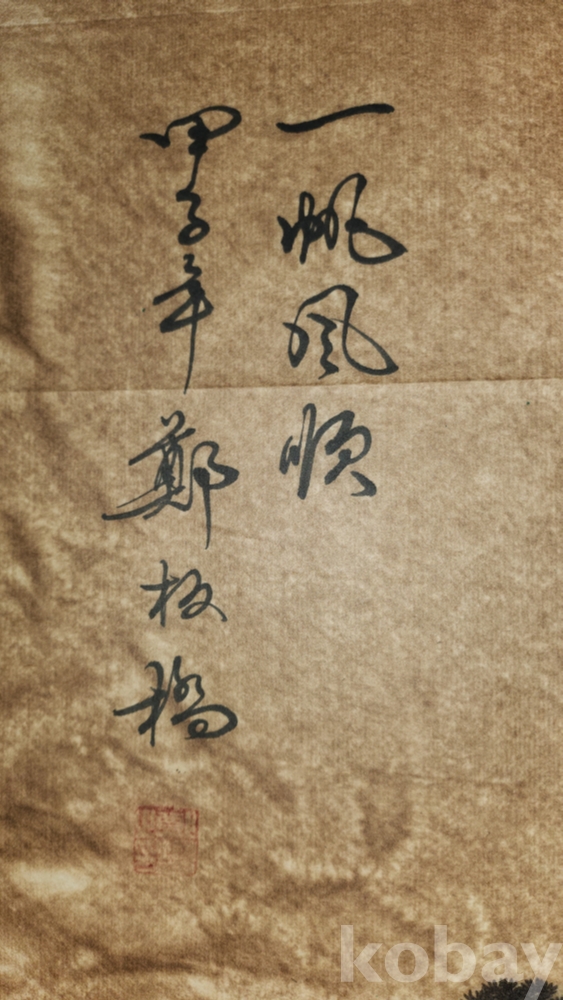 一帆風順
甲子年 鄭板橋
kobay